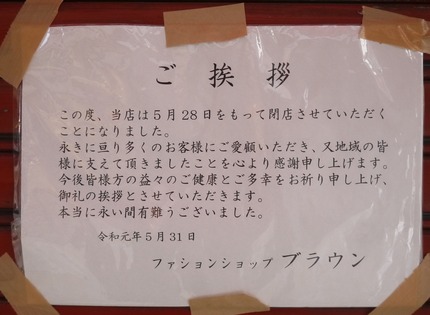 ご挨拶
この度、当店は５月28日をもって閉店させていただく
ことになりました。
永きに亘り多くのお客様にご愛顧いただき、又地域の皆
様に支えて頂きましたことを心より感謝申し上げます。
今後皆様方の益々のご健康とご多幸をお祈り申し上げ、
御礼の挨拶とさせていただきます。
本当に永い間有難うございました。
令和元年５月31日
ファションショップ ブラウン